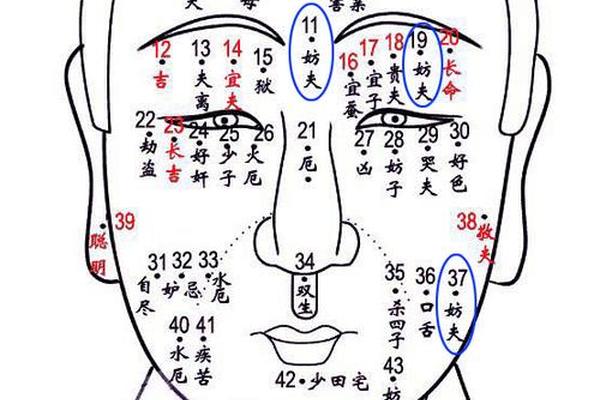 11 妨夫
12 吉
13 夫离
14 宜夫
15 狱
16 宜蚕
17 宜子
18 贵夫
19 妨夫
20 长命
21 厄
22 劫盗
23 长吉
24 好奸
25 少子
26 火厄
27 凶
28 妨子
29 哭夫
30 好色
39 聪明
38 敬夫
31 自尽
32 妒忌
33 水厄
34 双生
35 杀四子
36 口舌
37 妨夫
40 水厄
41 疾苦
42 少田宅
43 妨